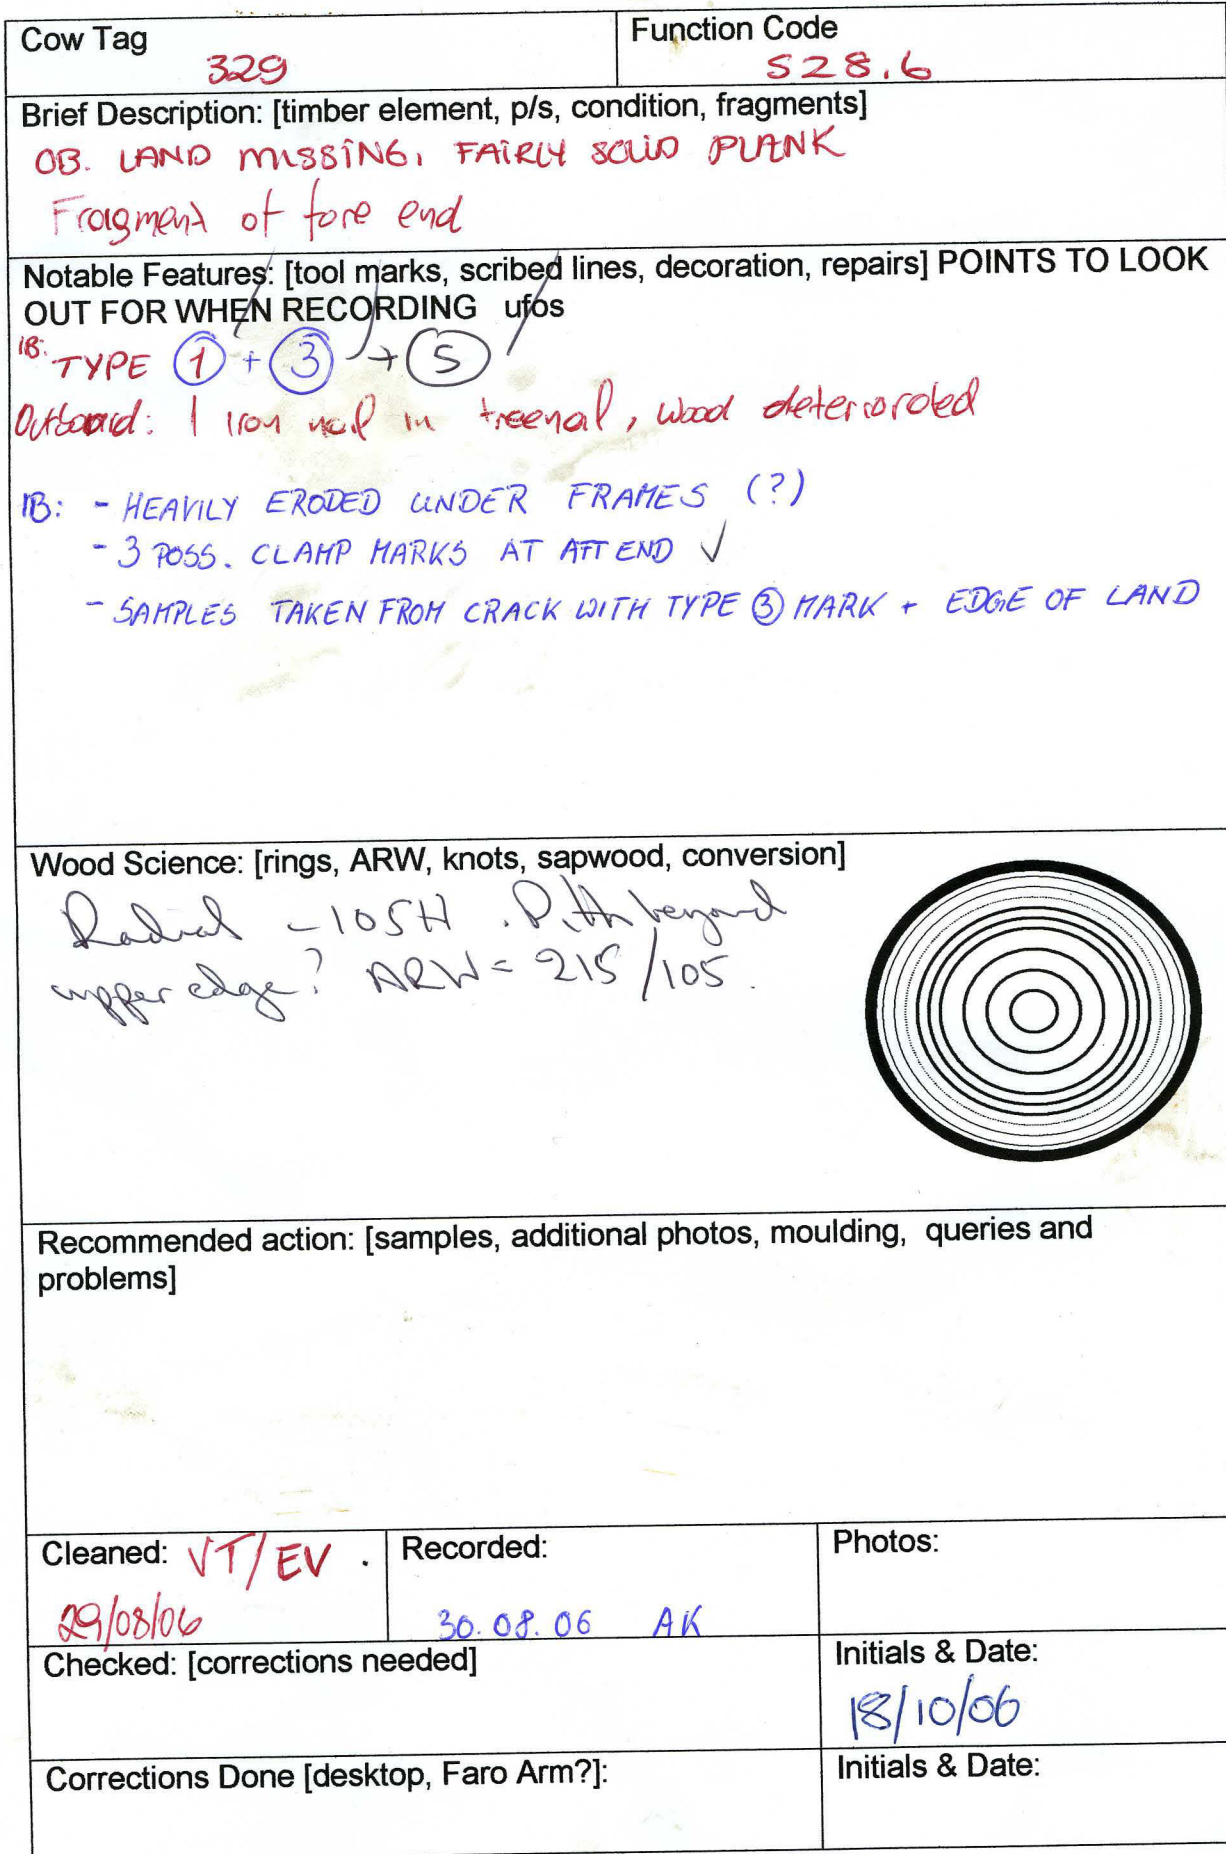 Cow Tag
329
Function Code
S28.6
Brief Description: [timber element, p/s, condition, fragments]
OB. LAND MISSING, FAIRLY SOLID PLANK
Fragment of fore end
Notable Features: [tool marks, scribed lines, decoration, repairs] POINTS TO LOOK
OUT FOR WHEN RECORDING ufos
IB: TYPE 1 + 3 + 5
Outboard: 1 iron nail in treenal, wood deteriorated
IB: - HEAVILY ERODED UNDER FRAMES (?)
- 3 POSS. CLAMP MARKS AT AFT END ✓
- SAMPLES TAKEN FROM CRACK WITH TYPE 3 MARK + EDGE OF LAND
Wood Science: [rings, ARW, knots, sapwood, conversion]
Radial - 105H. Pith beyond
upper edge? ARW = 215/105.
Recommended action: [samples, additional photos, moulding, queries and
problems]
Cleaned: VT/EV.
29/08/06
Recorded:
30.08.06 AK
Photos:
Checked: [corrections needed]
Initials & Date:
18/10/06
Corrections Done [desktop, Faro Arm?]:
Initials & Date: